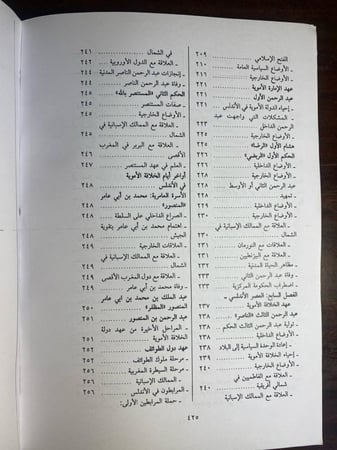 الفتح الإسلامي ........ ٢٠٩
ـ الأوضاع السياسية العامة ........ ٢١٠
ـ الأوضاع الخارجية ........ ٢٢١
عهد الإمارة الأموية ........ ٢٢١
عبد الرحمن الأول ........ ٢٢١
ـ إحياء الدولة الأموية في الأندلس ........ ٢٢١
ـ المشكلات التي واجهت عبد
الرحمن الداخل ........ ٢٢٣
هشام الأول «الرضا» ........ ٢٢٥
الحكم الأول «الربضي» ........ ٢٢٦
ـ الأوضاع الداخلية ........ ٢٢٦
ـ الأوضاع الخارجية ........ ٢٢٨
عبد الرحمن الثاني أو الأوسط ........ ٢٢٨
ـ تمهيد ........ ٢٢٨
ـ الأوضاع الداخلية ........ ٢٢٩
ـ الأوضاع الخارجية ........ ٢٣٠
ـ العلاقة مع الممالك الإسبانية في
الشمال ........ ٢٣٠
ـ العلاقات مع النورمان ........ ٢٣١
ـ العلاقة مع البيزنطيين ........ ٢٣١
ـ مظاهر الحياة المدنية ........ ٢٣٢
ـ وفاة عبد الرحمن الثاني ........ ٢٣٣
ـ اضطراب الحكومة المركزية ........ ٢٣٣
الفصل السابع: العصر الأندلسي ـ
عهد الخلافة الأموية ........ ٢٣٧
عبد الرحمن الثالث «الناصر» ........ ٢٣٨
ـ تولية عبد الرحمن الثالث الحكم ........ ٢٣٨
ـ الأوضاع الداخلية ........ ٢٣٨
ـ إعادة الوحدة السياسية إلى البلاد ........ ٢٣٨
ـ إحياء الخلافة الأموية ........ ٢٣٩
ـ الأوضاع الخارجية ........ ٢٤٠
ـ العلاقة مع الفاطميين في
شمالي أفريقية ........ ٢٤٠
ـ العلاقة مع الممالك الإسبانية
في الشمال ........ ٢٤١
ـ العلاقة مع الدول الأوروبية ........ ٢٤٢
ـ إنجازات عبد الرحمن الناصر المدنية ........ ٢٤٤
ـ وفاة عبد الرحمن الناصر ........ ٢٤٤
الحكم الثاني «المستنصر بالله» ........ ٢٤٥
ـ صفات المستنصر ........ ٢٤٥
ـ الأوضاع الخارجية ........ ٢٤٥
ـ العلاقة مع الممالك الإسبانية في
الشمال ........ ٢٤٥
ـ العلاقة مع البربر في المغرب
الأقصى ........ ٢٤٦
ـ العلم في عهد المستنصر ........ ٢٤٧
أواخر أيام الخلافة الأموية
في الأندلس ........ ٢٤٨
الأسرة العامرية: محمد بن أبي عامر
«المنصور» ........ ٢٤٨
ـ الصراع الداخلي على السلطة ........ ٢٤٨
ـ اهتمام محمد بن أبي عامر بتقوية
الجيش ........ ٢٤٨
ـ العلاقات الخارجية ........ ٢٤٩
ـ العلاقة مع الممالك الإسبانية في
الشمال ........ ٢٤٩
ـ العلاقة مع دول المغرب الأقصى ........ ٢٤٩
ـ وفاة محمد بن أبي عامر ........ ٢٤٩
عبد الملك بن محمد بن أبي عامر
المنصور «المظفر» ........ ٢٥٠
عبد الرحمن بن المنصور ........ ٢٥٠
ـ المراحل الأخيرة من عهد دولة
الخلافة الأموية ........ ٢٥١
عهد دول الطوائف ........ ٢٥٢
ـ مرحلة ملوك الطوائف ........ ٢٥٢
ـ مرحلة السيطرة المغربية ........ ٢٥٦
ـ الممالك الإسبانية ........ ٢٥٦
ـ المرابطون في الأندلس ........ ٢٥٦
ـ حملة المرابطين الأولى:
٤٢٥